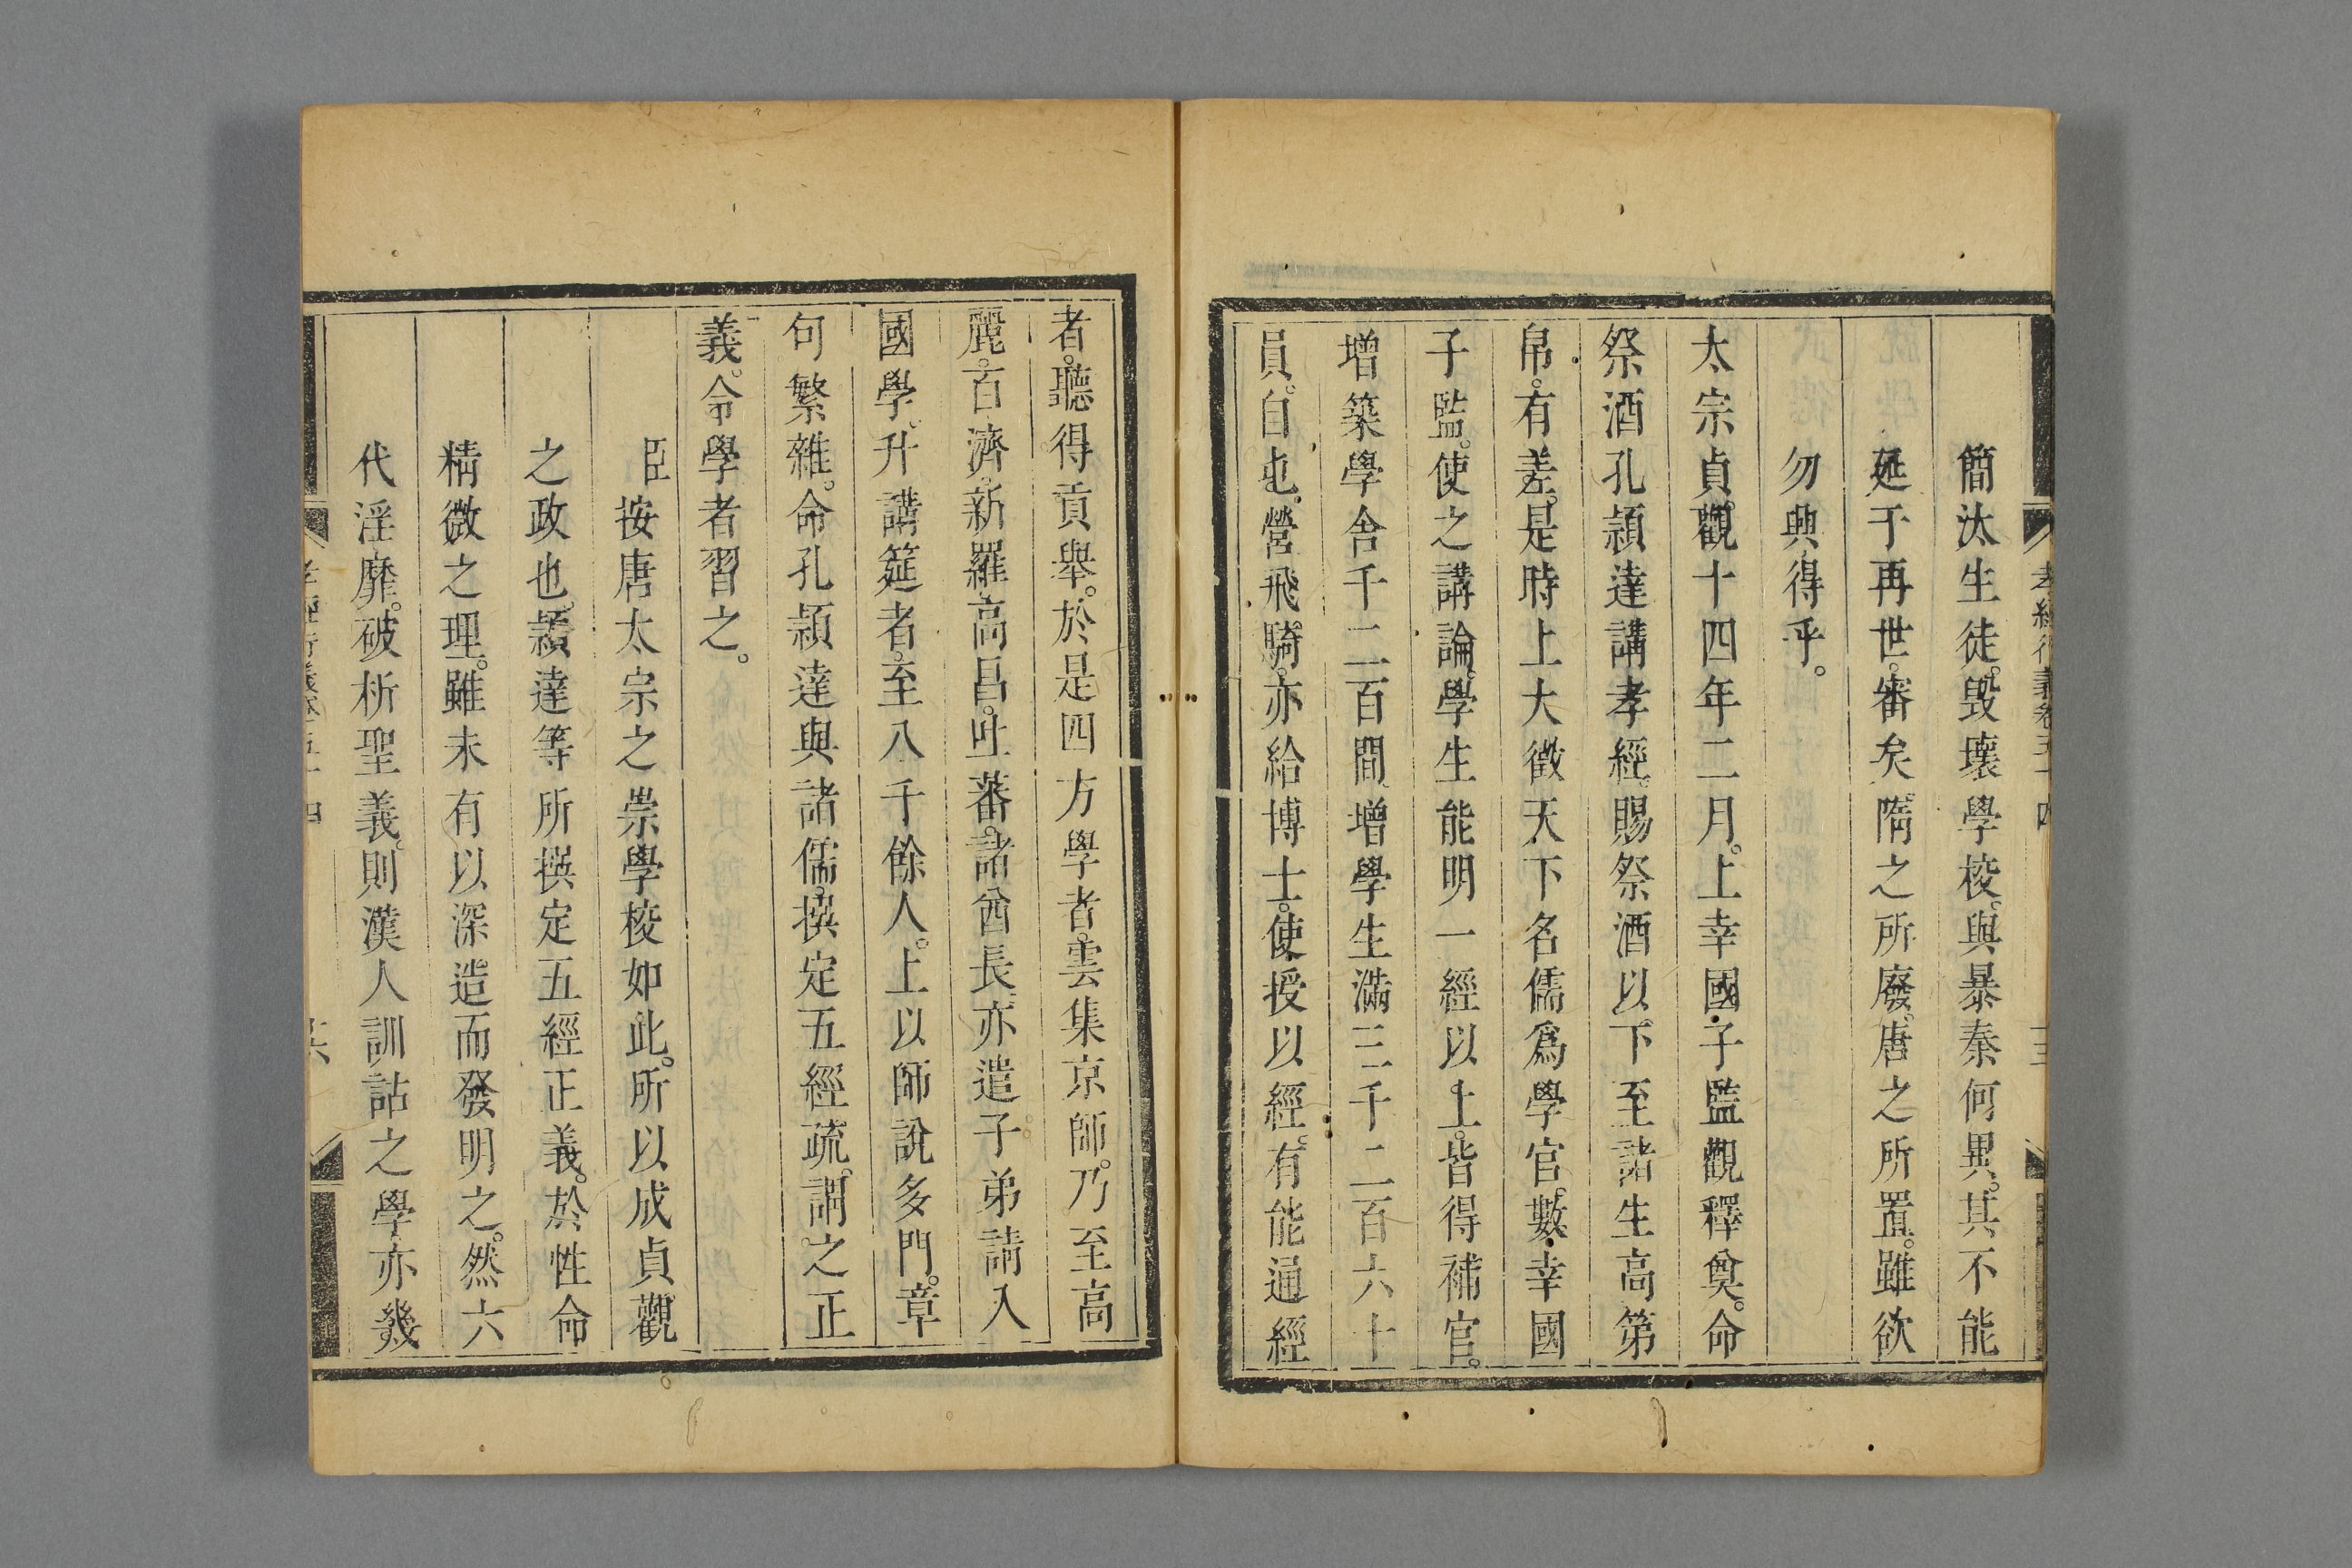 簡汰生徒。毀壞學校。與暴秦何異。其不能
延于再世。審矣。隋之所廢。唐之所置。雖欲
勿興得乎。
太宗貞觀十四年二月。上幸國子監觀釋奠。命
祭酒孔頴達講孝經。賜祭酒以下至諸生高第
帛。有差。是時上大徵天下名儒爲學官。數幸國
子監。使之講論。學生能明一經以上。皆得補官。
增築學舍千二百間。增學生滿三千二百六十
員。自屯營飛騎。亦給博士。使授以經。有能通經
者。聽得貢舉。於是四方學者。雲集京師。乃至高
麗。百濟。新羅。高昌。吐蕃。諸酋長。亦遣子弟請入
國學。升講筵者。至八千餘人。上以師說多門。章
句繁雜。命孔頴達與諸儒。撰定五經疏。謂之正
義。令學者習之。
臣按唐太宗之崇學校如此。所以成貞觀
之政也。頴達等所撰定五經正義。於性命
精微之理。雖未有以深造而發明之。然六
代淫靡。破析聖義。則漢人訓詁之學亦幾